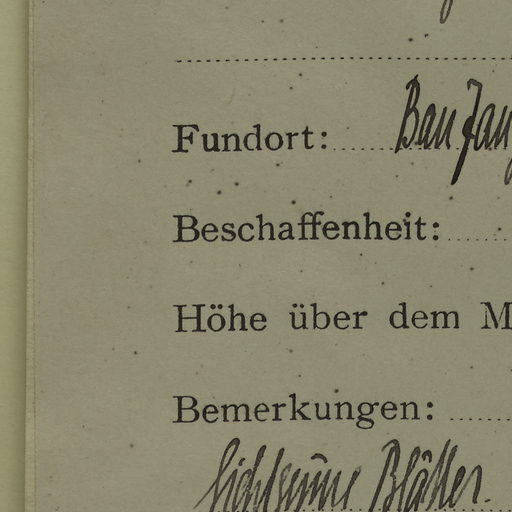 Fundort: Ban Jan
Beschaffenheit:
Höhe über dem M
Bemerkungen:
lichtgrüne Blätter.